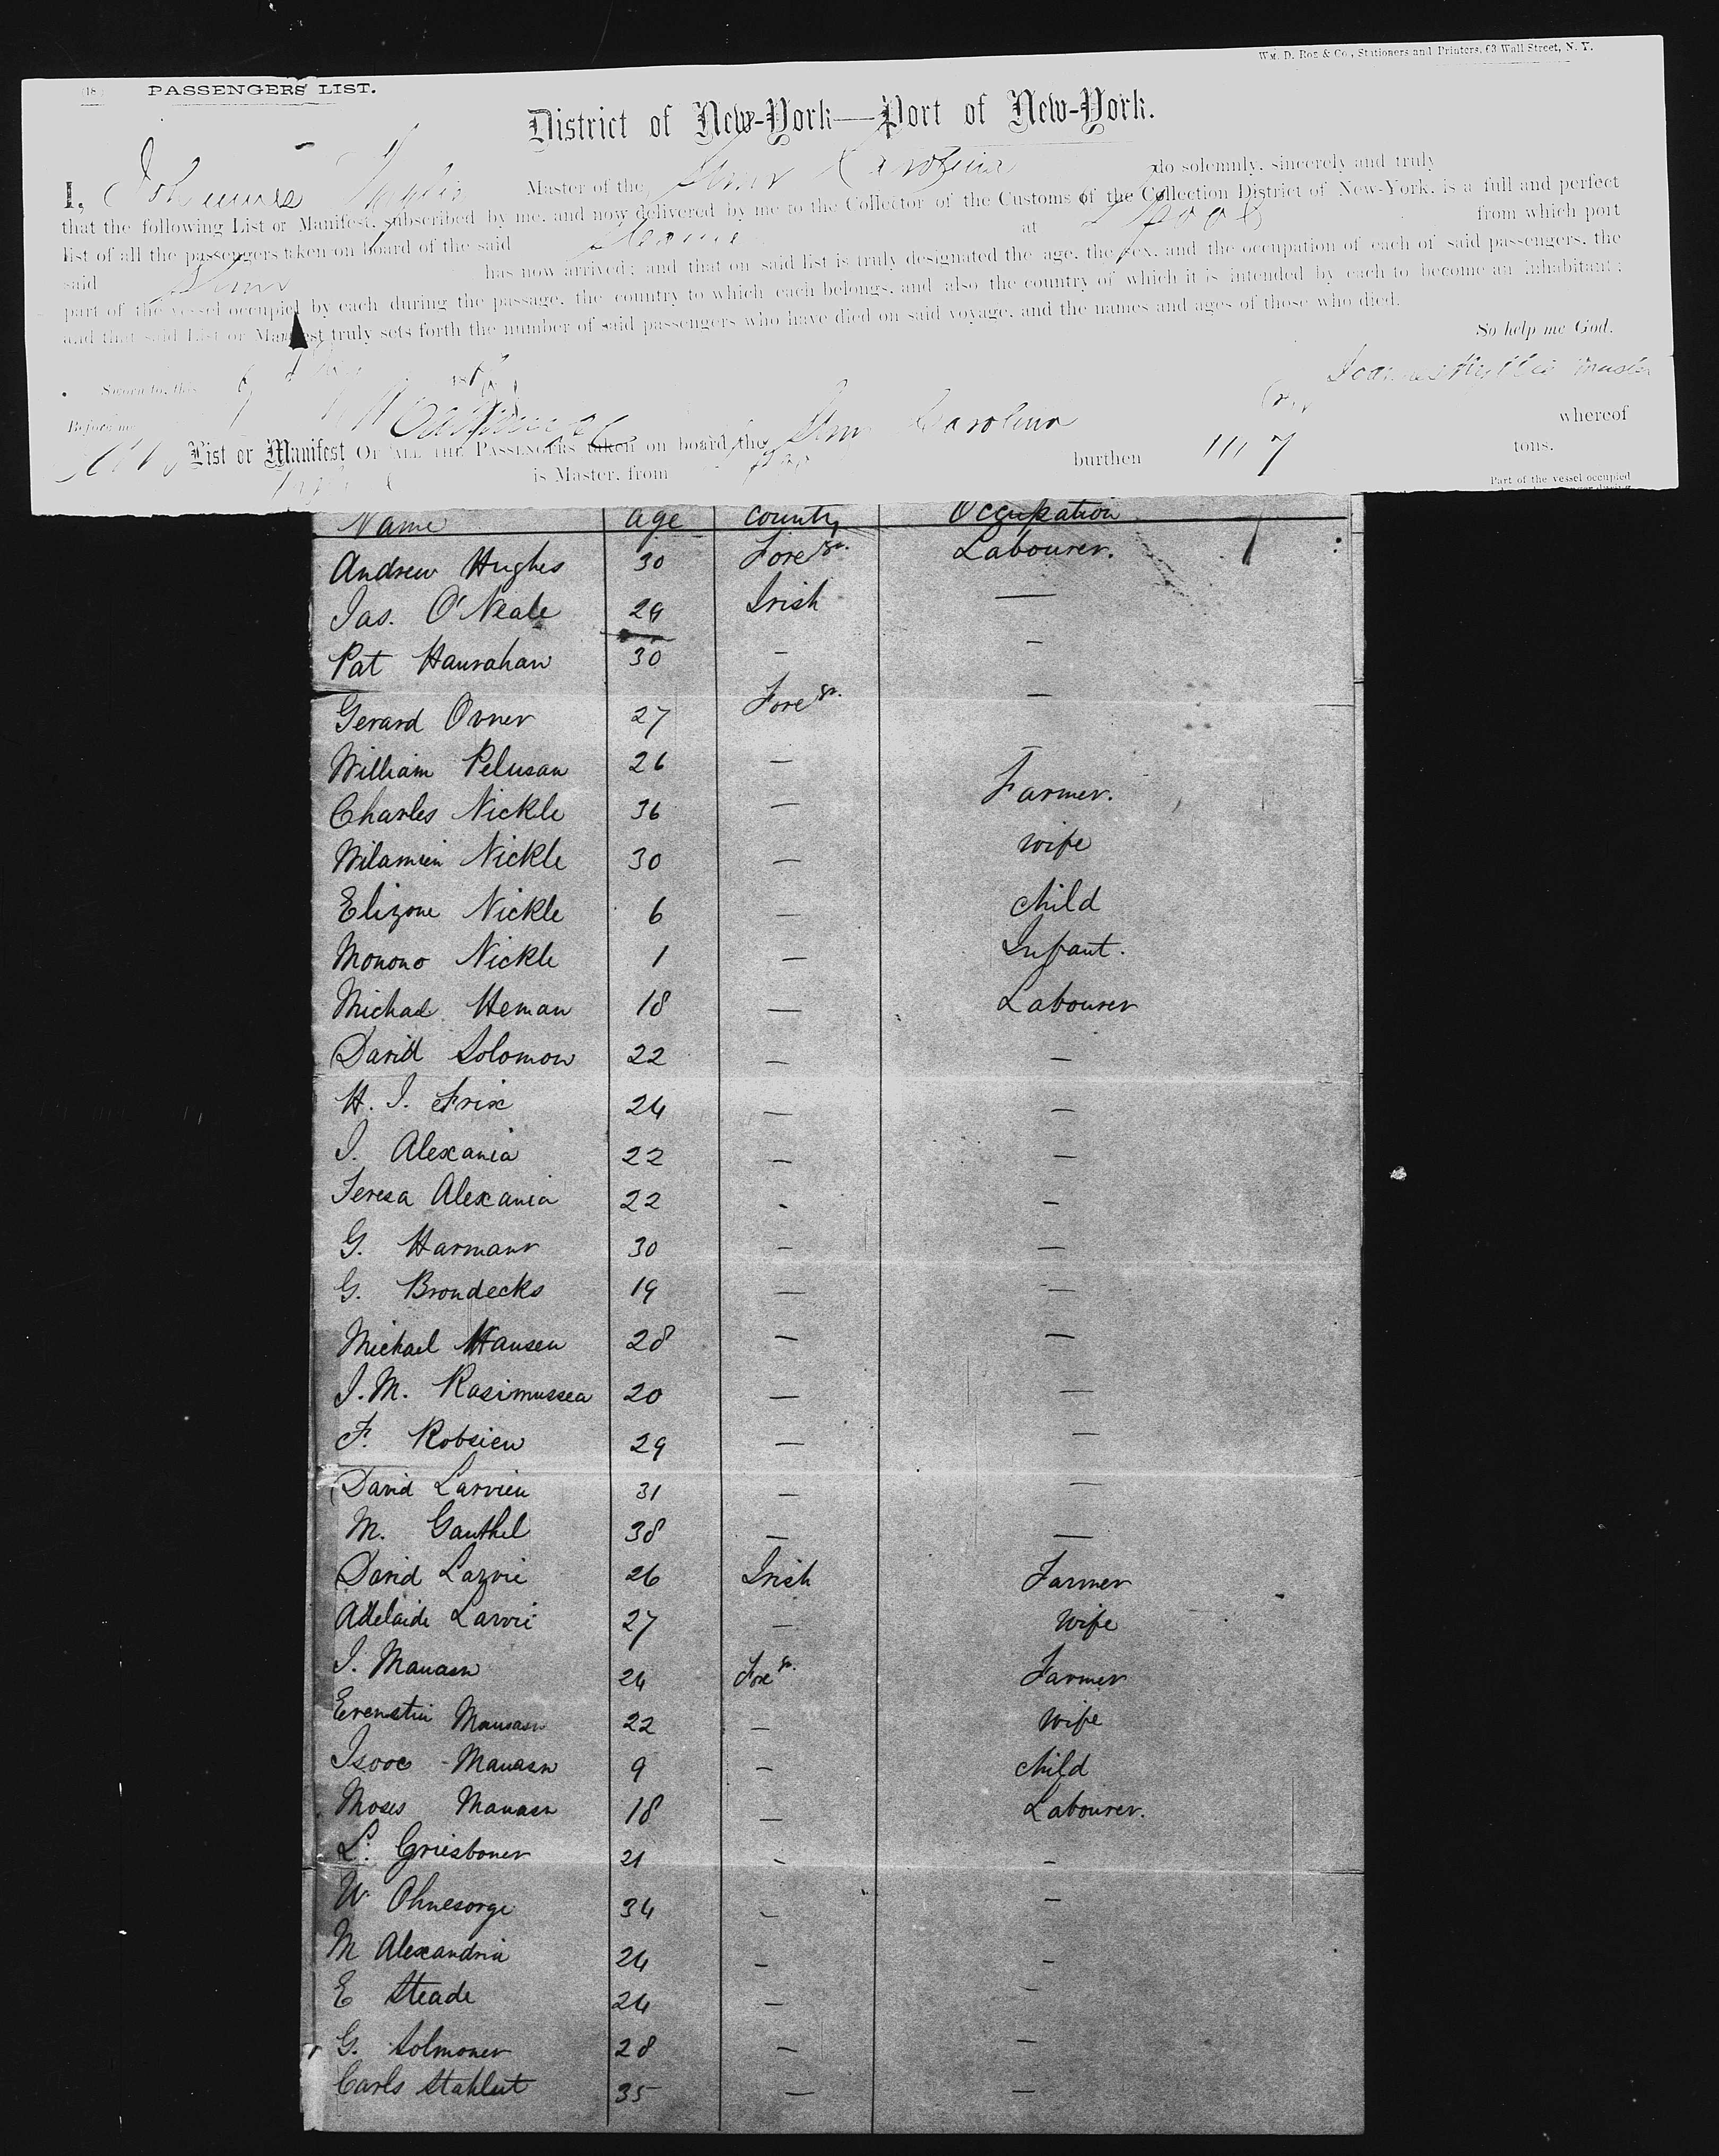 Wm. D. Roe & Co., Stationers and Printers, 63 Wall Street, N. Y.
(18
PASSENGERS' LIST.
District of New-York—Port of New-York.
I, Master of the do solemnly, sincerely and truly
that the following List or Manifest, subscribed by me, and now delivered by me to the Collector of the Customs of the Collection District of New-York, is a full and perfect
list of all the passengers taken on board of the said at from which port
said has now arrived; and that on said list is truly designated the age, the sex, and the occupation of each of said passengers, the
part of the vessel occupied by each during the passage, the country to which each belongs, and also the country of which it is intended by each to become an inhabitant;
and that said List or Manifest truly sets forth the number of said passengers who have died on said voyage, and the names and ages of those who died.
So help me God.
Sworn to, this 186 Master
Before me
List or Manifest OF ALL THE PASSENGERS taken on board the Carolina whereof
is Master, from burthen 1117 tons.
Part of the vessel occupied
Name age country Occupation
Andrew Hughes 30 Foregr. Labourer.
Jas. O'Neale 29 Irish —
Pat Hanrahan 30 — —
Gerard Orner 27 Foregr. —
William Pelusan 26 — —
Charles Nickle 36 — Farmer.
Wilamien Nickle 30 — Wife
Elizone Nickle 6 — Child
Monono Nickle 1 — Infant.
Michael Heman 18 — Labourer
David Solomon 22 — —
H. J. Frix 24 — —
J. Alexania 22 — —
Teresa Alexania 22 - —
G. Harmann 30 — —
G. Brondecks 19 — —
Michael Hansen 28 — —
J. M. Rasimussea 20 — —
F. Robsien 29 — —
David Larvien 31 — —
M. Gauthel 38 — —
David Larvie 26 Irish Farmer
Adelaide Larvie 27 — Wife
J. Manasn 24 Foregr. Farmer
Erenstin Manasn 22 — Wife
Isooc - Manasn 9 — Child
Moses Manasn 18 — Labourer.
L. Griesboner 21 - -
W. Ohnesorge 34 - —
M Alexandria 24 - -
E Steade 24 — —
G. Solmoner 28 — —
Carls Stahlut 35 — —